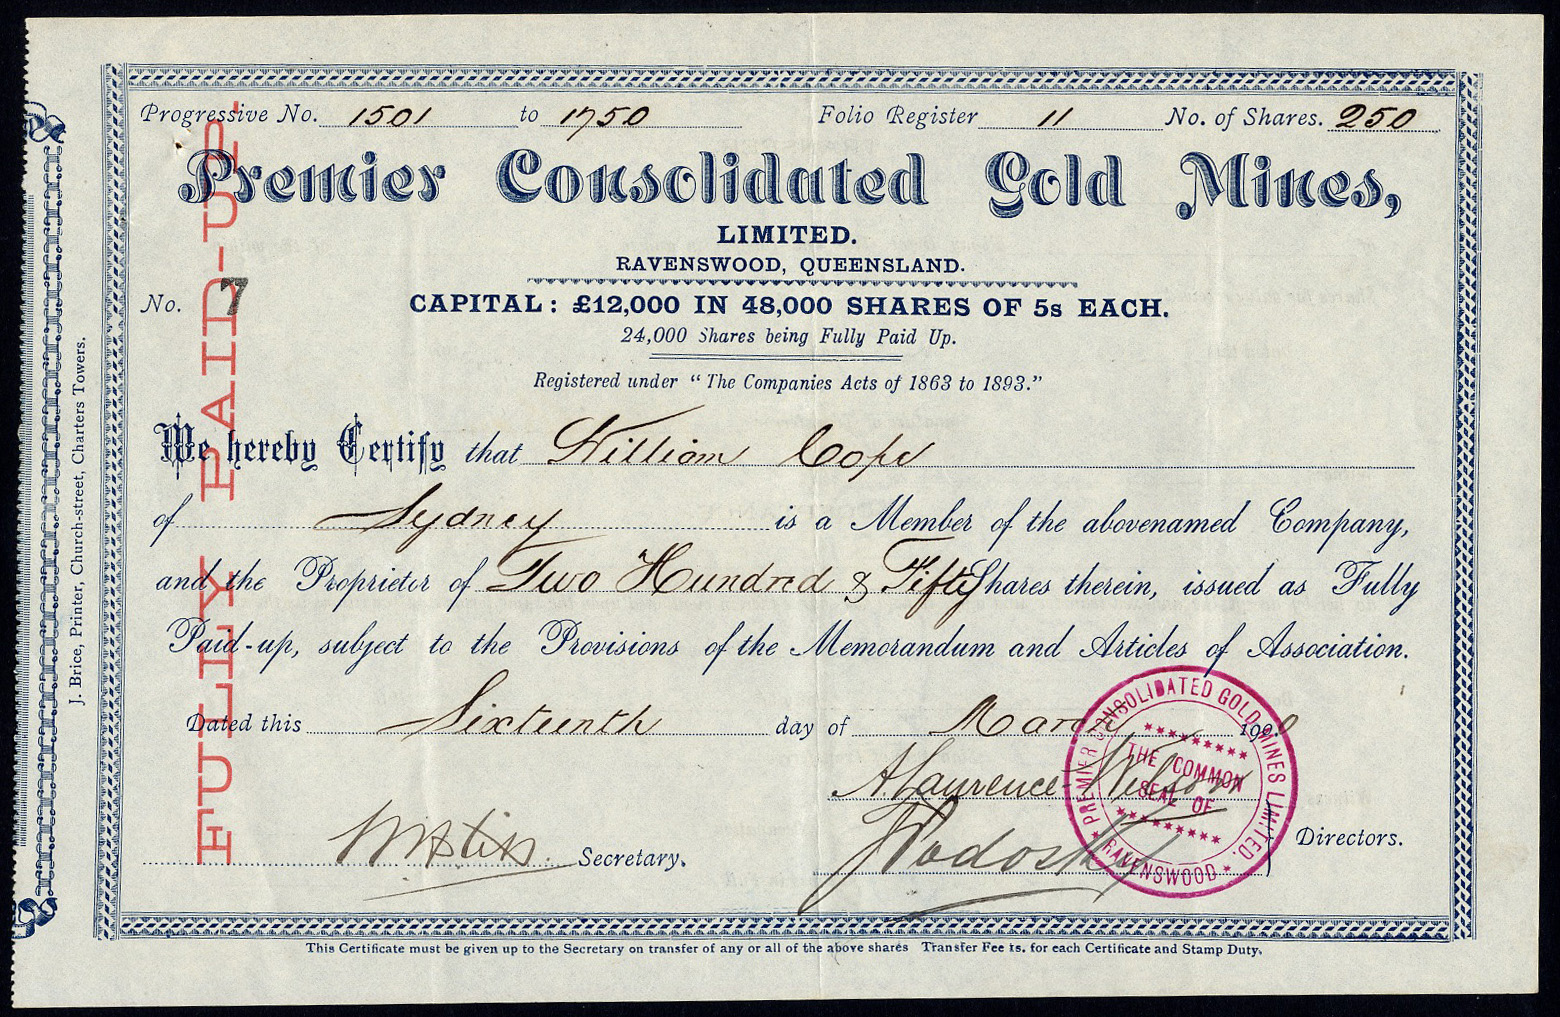 Progressive No. 1501 to 1750 Folio Register 11 No. of Shares. 250
Premier Consolidated Gold Mines,
LIMITED.
RAVENSWOOD, QUEENSLAND.
No. 7 CAPITAL: £12,000 IN 48,000 SHARES OF 5s EACH.
24,000 Shares being Fully Paid Up.
Registered under "The Companies Acts of 1863 to 1893."
We hereby Certify that William Cope
of Sydney is a Member of the abovenamed Company,
and the Proprietor of Two Hundred & Fifty Shares therein, issued as Fully
Paid-up, subject to the Provisions of the Memorandum and Articles of Association.
Dated this Sixteenth day of March 1900
A. Laurence Wilson
Secretary. Directors.
This Certificate must be given up to the Secretary on transfer of any or all of the above shares Transfer Fee 1s. for each Certificate and Stamp Duty.
FULLY PAID-UP
J. Brice, Printer, Church-street, Charters Towers.
PREMIER CONSOLIDATED GOLD MINES LIMITED.
THE COMMON
SEAL OF
* RAVENSWOOD *